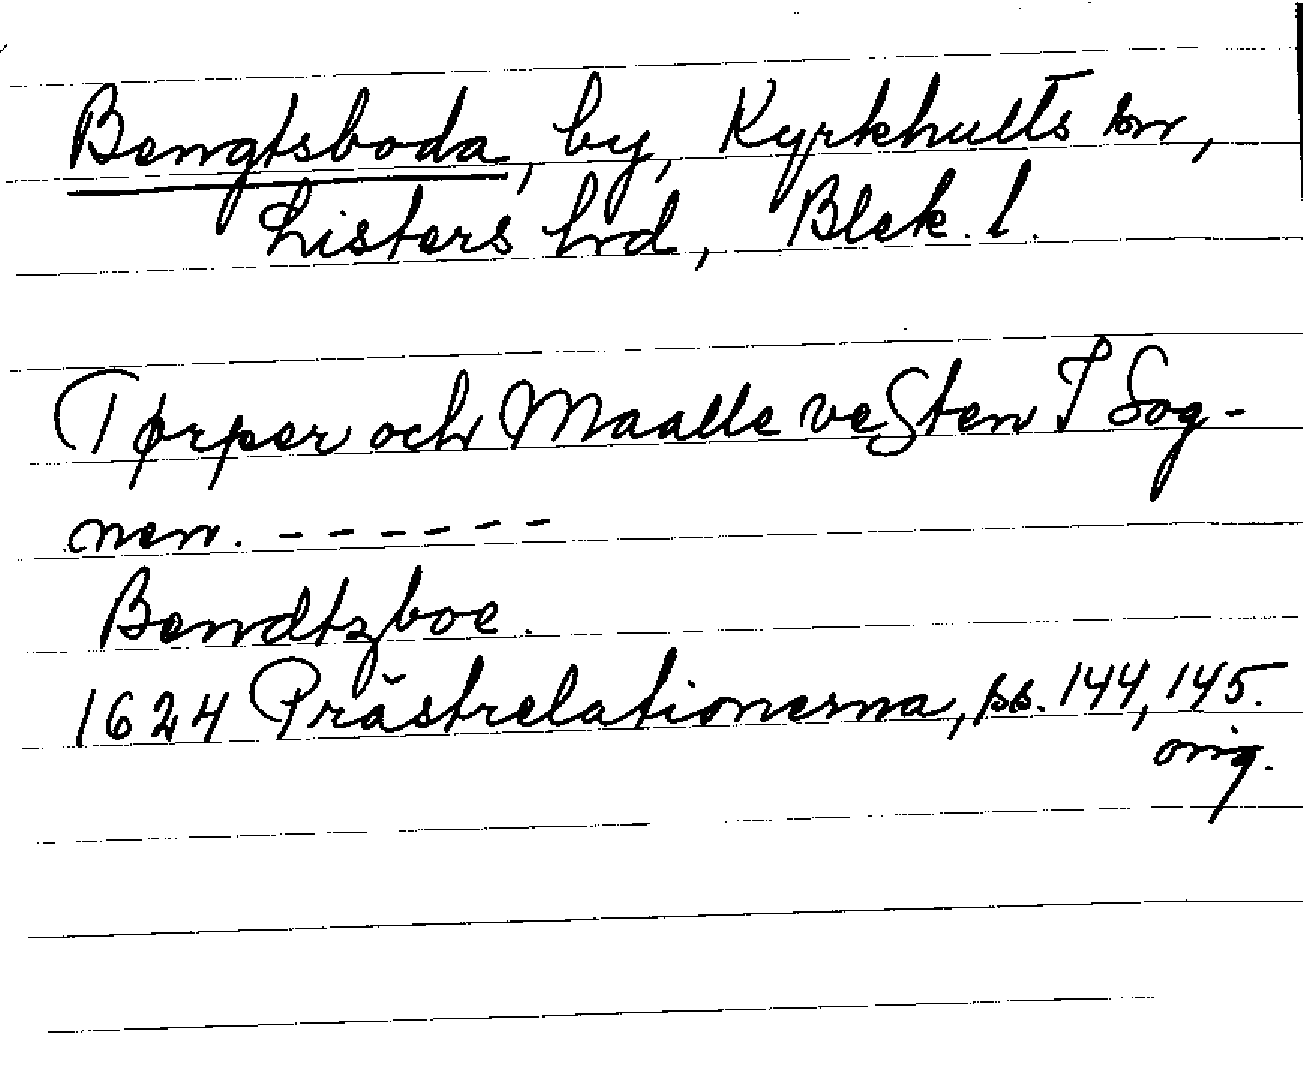 Bengtsboda, by, Kyrkhults sn,
Listers hd, Blek. l.
Tørper och Maalle veSten I Sog-
nen. - - - - - -
Bendtzboe.
1624 Prästrelationerna, ss. 144, 145.
orig.